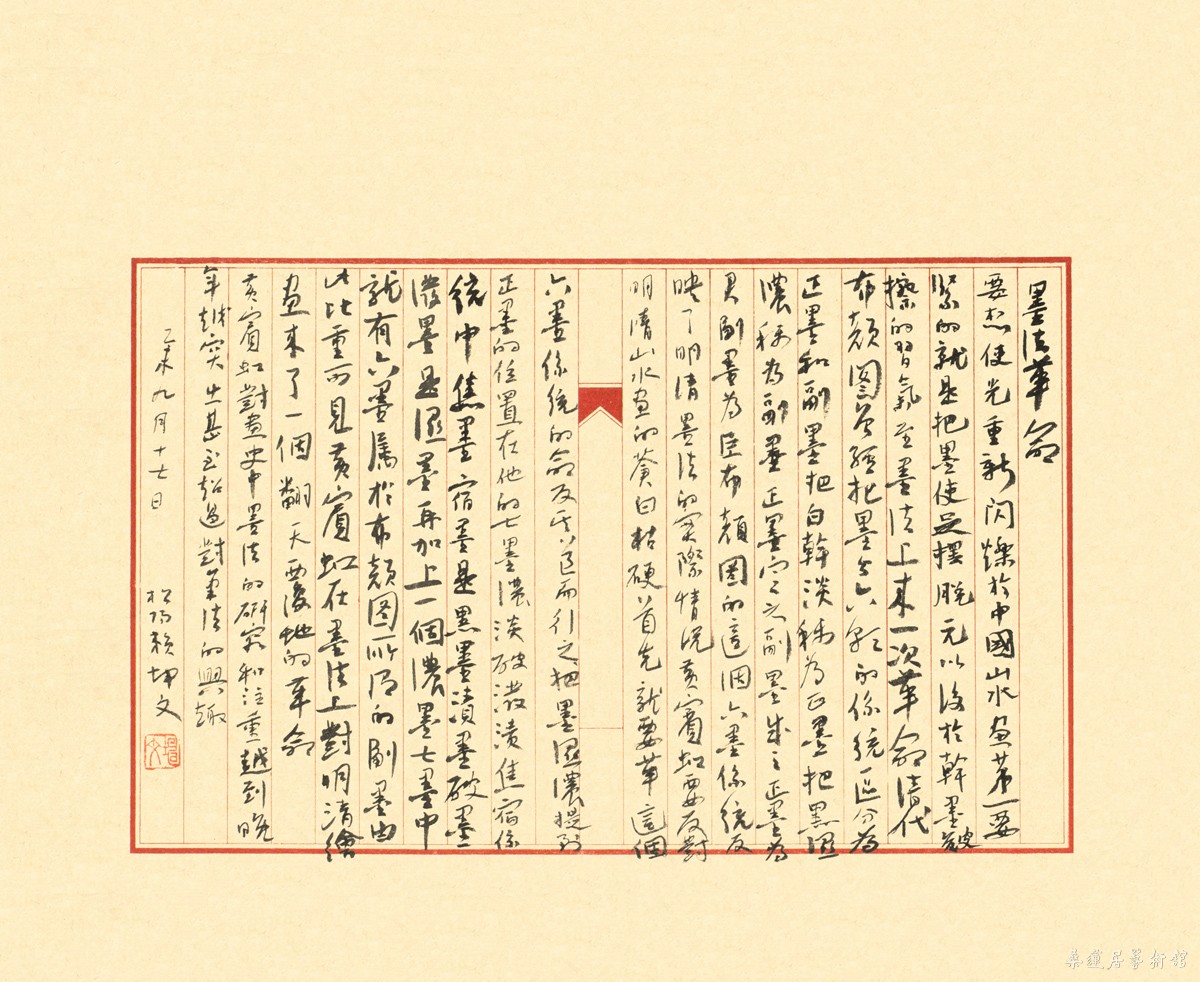 墨法革命
要想使光重新閃爍於中國山水畫第一要
緊的就是把墨使足擺脫元以後於幹墨皴
擦的習氣至墨法上來一次革命清代
布顏圖曾經把墨分六彩的係統區分為
正墨和副墨把白幹淡稱為正墨把黑濕
濃稱為副墨正墨定之副墨成之正墨為
君副墨為臣布顏圖的這個六墨係統反
映了明清墨法的實際情況黃賓虹要反對
明清山水畫的蒼白枯硬首先就要革這個
六墨係統的命反其道而行之把墨濕濃提到
正墨的位置在他的七墨濃淡破潑漬焦宿係
統中焦墨宿墨是黑墨漬墨破墨
潑墨是濕墨再加上一個濃墨七墨中
就有六墨屬於布顏圖所謂的副墨由
此比重可見黃賓虹在墨法上對明清繪
畫來了一個翻天覆地的革命
黃賓虹對畫史中墨法的研究和注重越到晚
年越突出甚至超過對筆法的興趣
乙未九月十七日 松陽賴坤文
桑蓮居藝術館